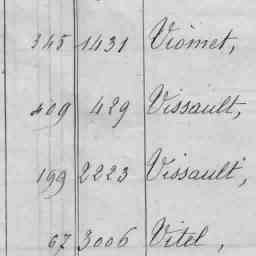 345 1431 Viomet,
409 429 Vissault,
199 2223 Vissault,
67 3006 Vitel,